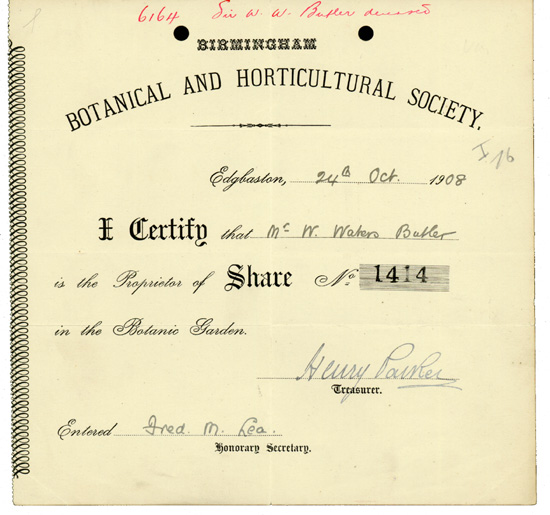 6164 Sir W. W. Butler deceased
BIRMINGHAM
BOTANICAL AND HORTICULTURAL SOCIETY.
Edgbaston, 24th Oct. 1908
I Certify that Mr W. Waters Butler
is the Proprietor of Share No. 1414
in the Botanic Garden.
Henry Parker
Treasurer.
Entered Fred. M. Lea.
Honorary Secretary.